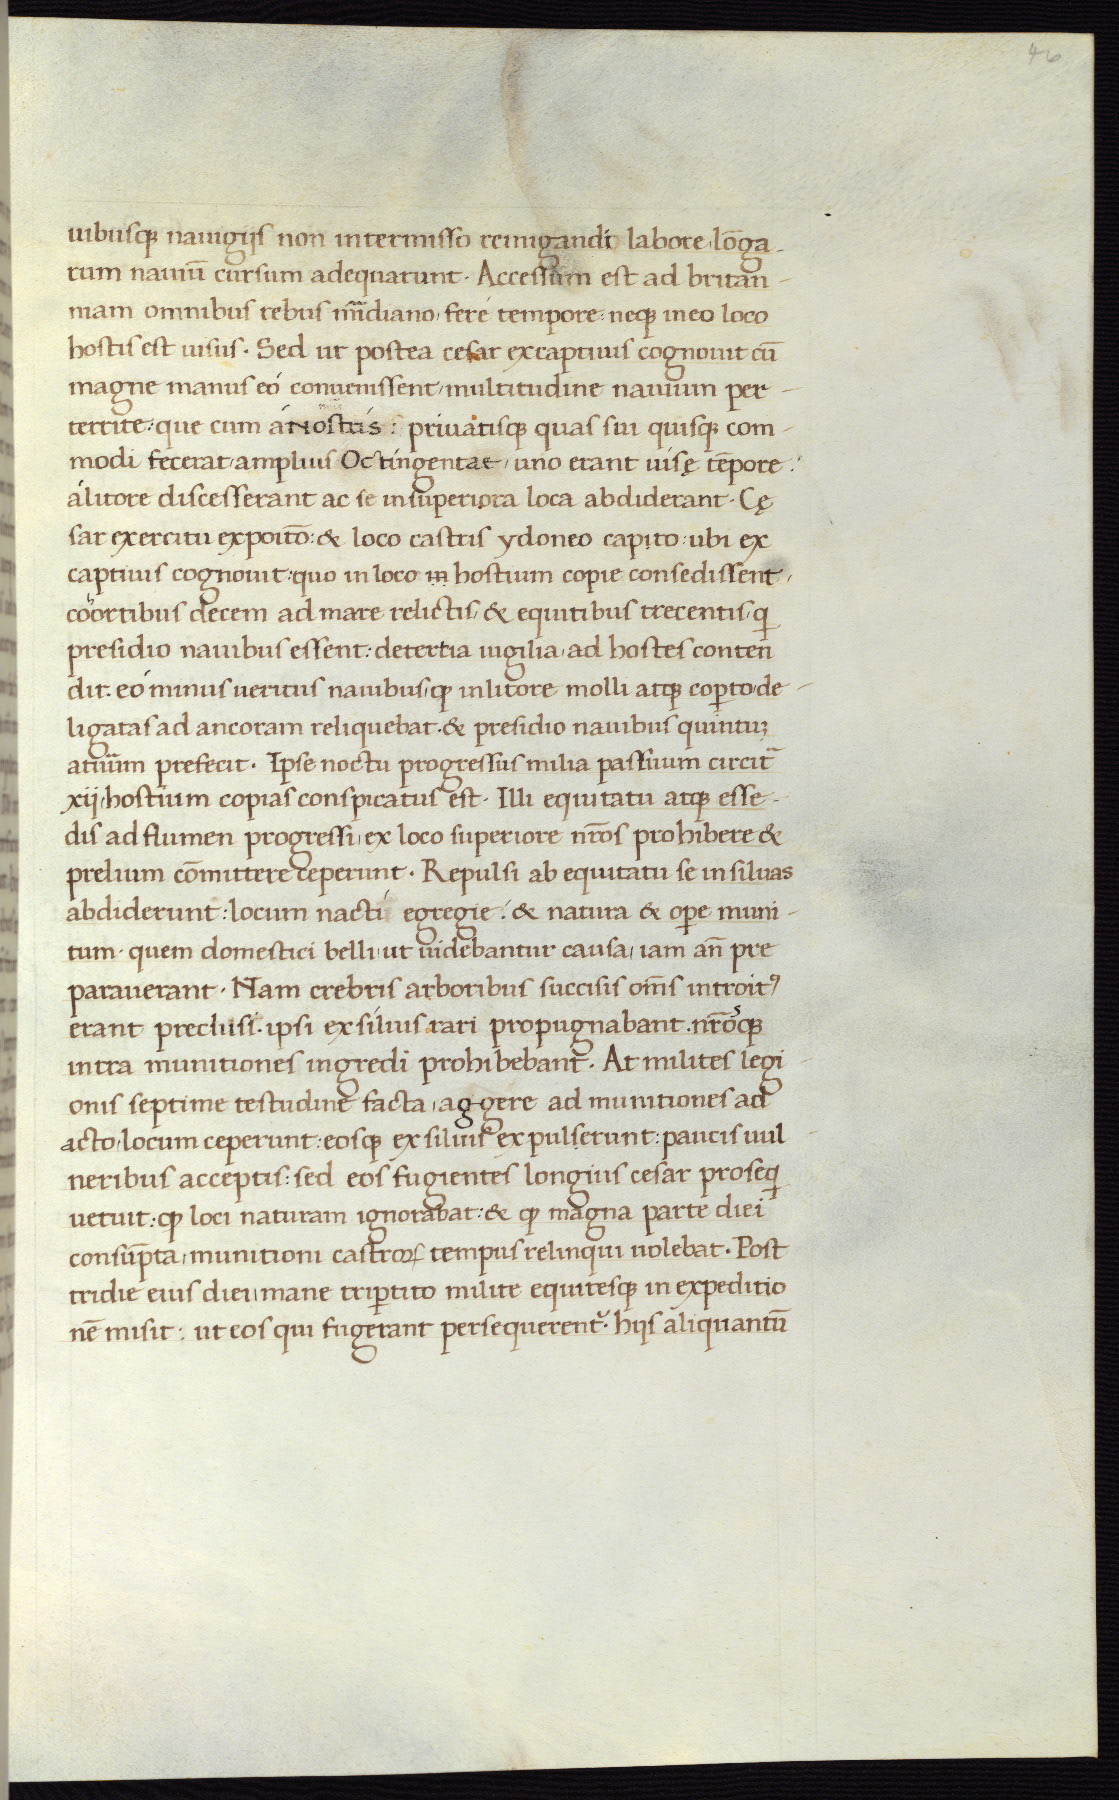 46
uibusq; nauigijs non intermisso remigandi labore, lōga-
rum nauiū cursum adequarunt. Accessum est ad britan-
niam omnibus rebus meridiano, fere tempore: neq; in eo loco
hostis est uisus. Sed ut postea cesar ex captiuis cognouit cū
magne manus eó conuenissent, multitudine nauium per-
territe: que cum á Nostris: priuatisq; quas sui quisq; com-
modi fecerat, amplius Octingentae, uno erant uisę tēpore:
á litore discesserant ac se in superiora loca abdiderant. Cę
sar exercitu expoito: & loco castris ydoneo capto: ubi ex
captiuis cognouit: quo in loco hostium copie consedissent,
cohortibus decem ad mare relictis, & equitibus trecentis, qi
presidio nauibus essent: de tertia uigilia, ad hostes conten
dit. eó minus ueritus nauibus, q; in litore molli atq; apto, de-
ligatas ad ancoram reliquebat. & presidio nauibus quintuʒ
atrium prefecit. Ipse noctu progressus milia passuum circit͛
xij, hostium copias conspicatus est. Illi equitatu atq; esse-
dis ad flumen progressi, ex loco superiore nr̄os prohibere &
prelium cōmittere ceperunt. Repulsi ab equitatu se in siluas
abdiderunt: locum nacti egregie: & natura & ope muni-
tum. quem domestici belli, ut uidebantur causa, iam an̄ pre
parauerant. Nam crebris arboribus succisis om̄s introitꝰ
erant preclusi. ipsi ex siluis rari propugnabant. nr̄osq;
intra munitiones ingredi prohibebant. At milites legi
onis septime testudine facta, aggere ad munitiones ad
acto, locum ceperunt: eosq; ex siluis expulserunt: paucis uul
neribus acceptis: sed eos fugientes longius cesar proseqi
uetuit: q; loci naturam ignorabat: & q; magna parte diei
consūpta, munitioni castroꝝ tempus relinqui uolebat. Post
tridie eius diei, mane tripertito milite equitesq; in expeditio
nē misit: ut eos qui fugerant persequerent͛. hijs aliquantū